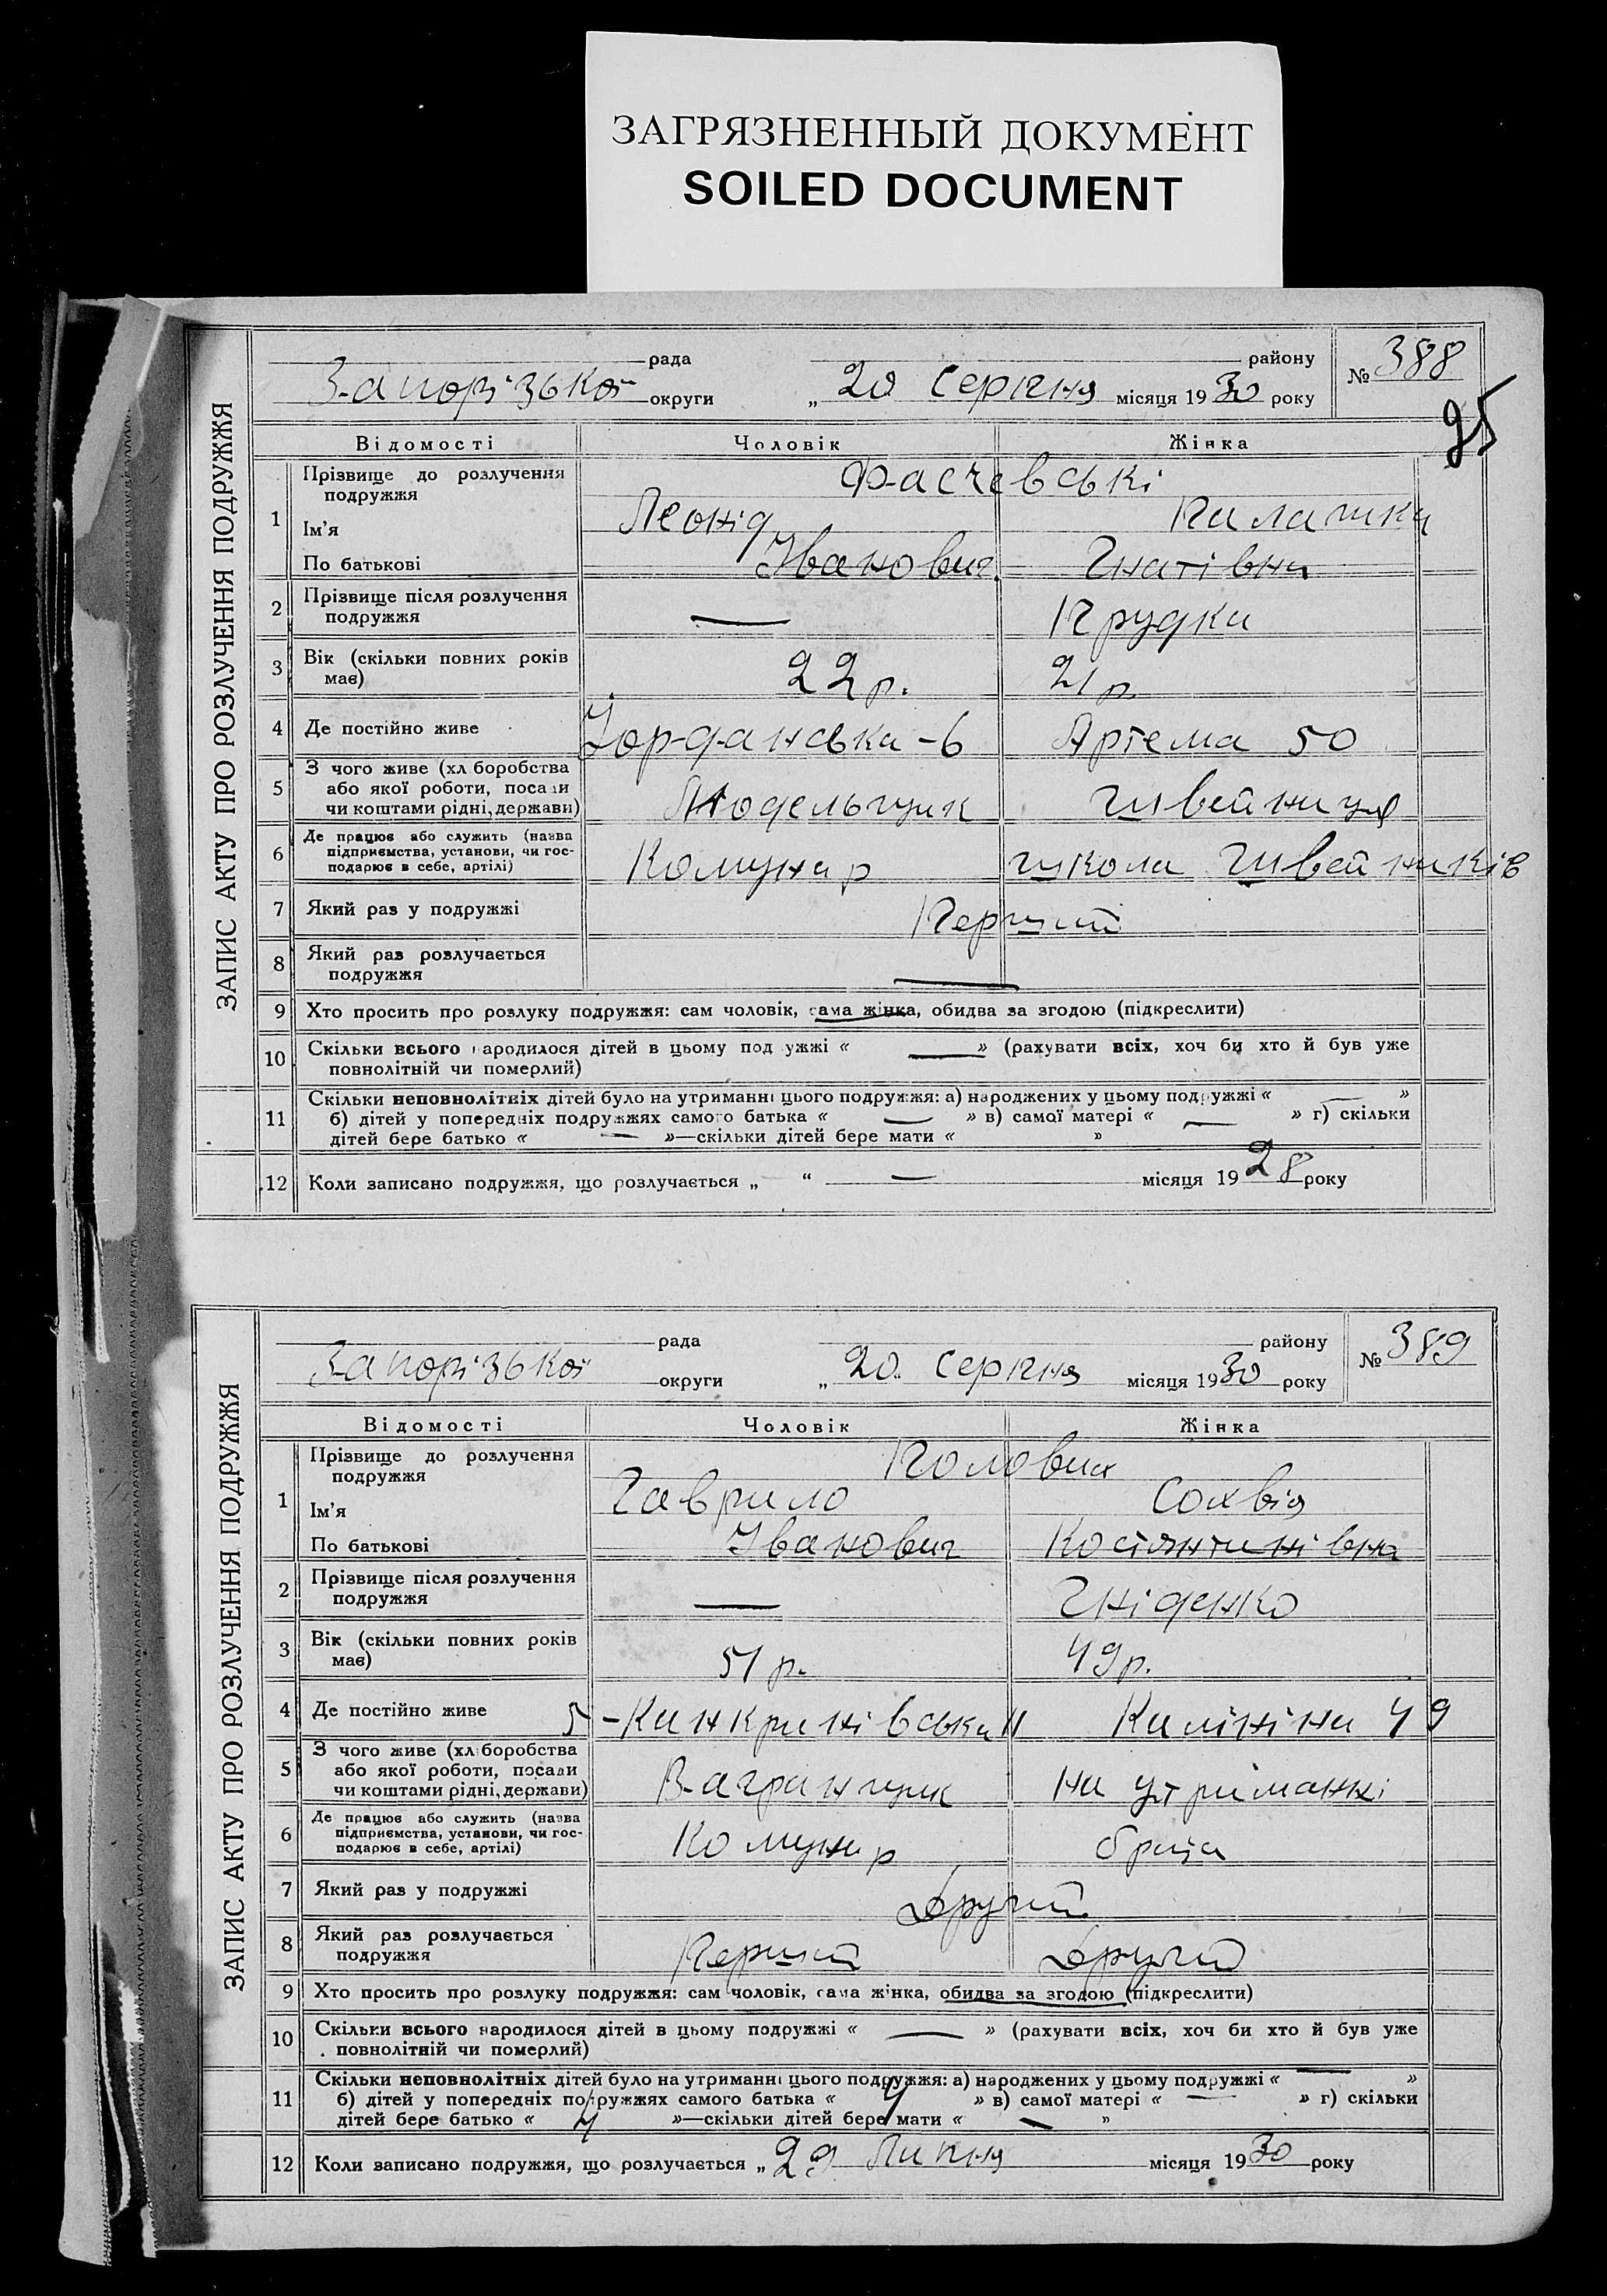 ЗАГРЯЗНЕННЫЙ ДОКУМЕНТ
SOILED DOCUMENT
ЗАПИС АКТУ ПРО РОЗЛУЧЕННЯ ПОДРУЖЖЯ
рада району
Запорізької округи „ 20 Серпня місяця 1930 року
№ 388
95
Відомості Чоловік Жінка
1 Прізвище до розлучення подружжя
Ім'я Леонід
По батькові Іванович Гнатівна
2 Прізвище після розлучення подружжя — Прудка
3 Вік (скільки повних років має) 22 р. 21 р.
4 Де постійно живе Йорданська-6 Артема 50
5 З чого живе (хлiборобства або якої роботи, посади чи коштами рідні, держави) Модельщик Швейниця
6 Де працює або служить (назва підприємства, установи, чи господарює в себе, артілі) Комунар школа швейників
7 Який раз у подружжі Перший
8 Який раз розлучається подружжя —
9 Хто просить про розлуку подружжя: сам чоловік, сама жінка, обидва за згодою (підкреслити)
10 Скільки всього народилося дітей в цьому подружжі « — » (рахувати всіх, хоч би хто й був уже
повнолітній чи померлий)
11 Скільки неповнолітніх дітей було на утриманні цього подружжя: а) народжених у цьому подружжі « — »
б) дітей у попередніх подружжях самого батька « — » в) самої матері « — » г) скільки
дітей бере батько « — »—скільки дітей бере мати « »
12 Коли записано подружжя, що розлучається „ — “ — місяця 1928 року
ЗАПИС АКТУ ПРО РОЗЛУЧЕННЯ ПОДРУЖЖЯ
рада району
Запорізької округи „ 20 Серпня місяця 1930 року
№ 389
Відомості Чоловік Жінка
1 Прізвище до розлучення подружжя
Ім'я Гаврило Сохвія
По батькові Іванович Костянтинівна
2 Прізвище після розлучення подружжя — Гніденко
3 Вік (скільки повних років має) 51 р. 49 р.
4 Де постійно живе 5-Канкринівська 11 Калініна 49
5 З чого живе (хлiборобства або якої роботи, посади чи коштами рідні, держави) Вагранщик на утриманні
6 Де працює або служить (назва підприємства, установи, чи господарює в себе, артілі) Комунар брата
7 Який раз у подружжі Другий
8 Який раз розлучається подружжя Перший Другий
9 Хто просить про розлуку подружжя: сам чоловік, сама жінка, обидва за згодою (підкреслити)
10 Скільки всього народилося дітей в цьому подружжі « — » (рахувати всіх, хоч би хто й був уже
повнолітній чи померлий)
11 Скільки неповнолітніх дітей було на утриманні цього подружжя: а) народжених у цьому подружжі « — »
б) дітей у попередніх подружжях самого батька « 4 » в) самої матері « — » г) скільки
дітей бере батько « 4 »—скільки дітей бере мати « — »
12 Коли записано подружжя, що розлучається „ 29 Липня місяця 1930 року